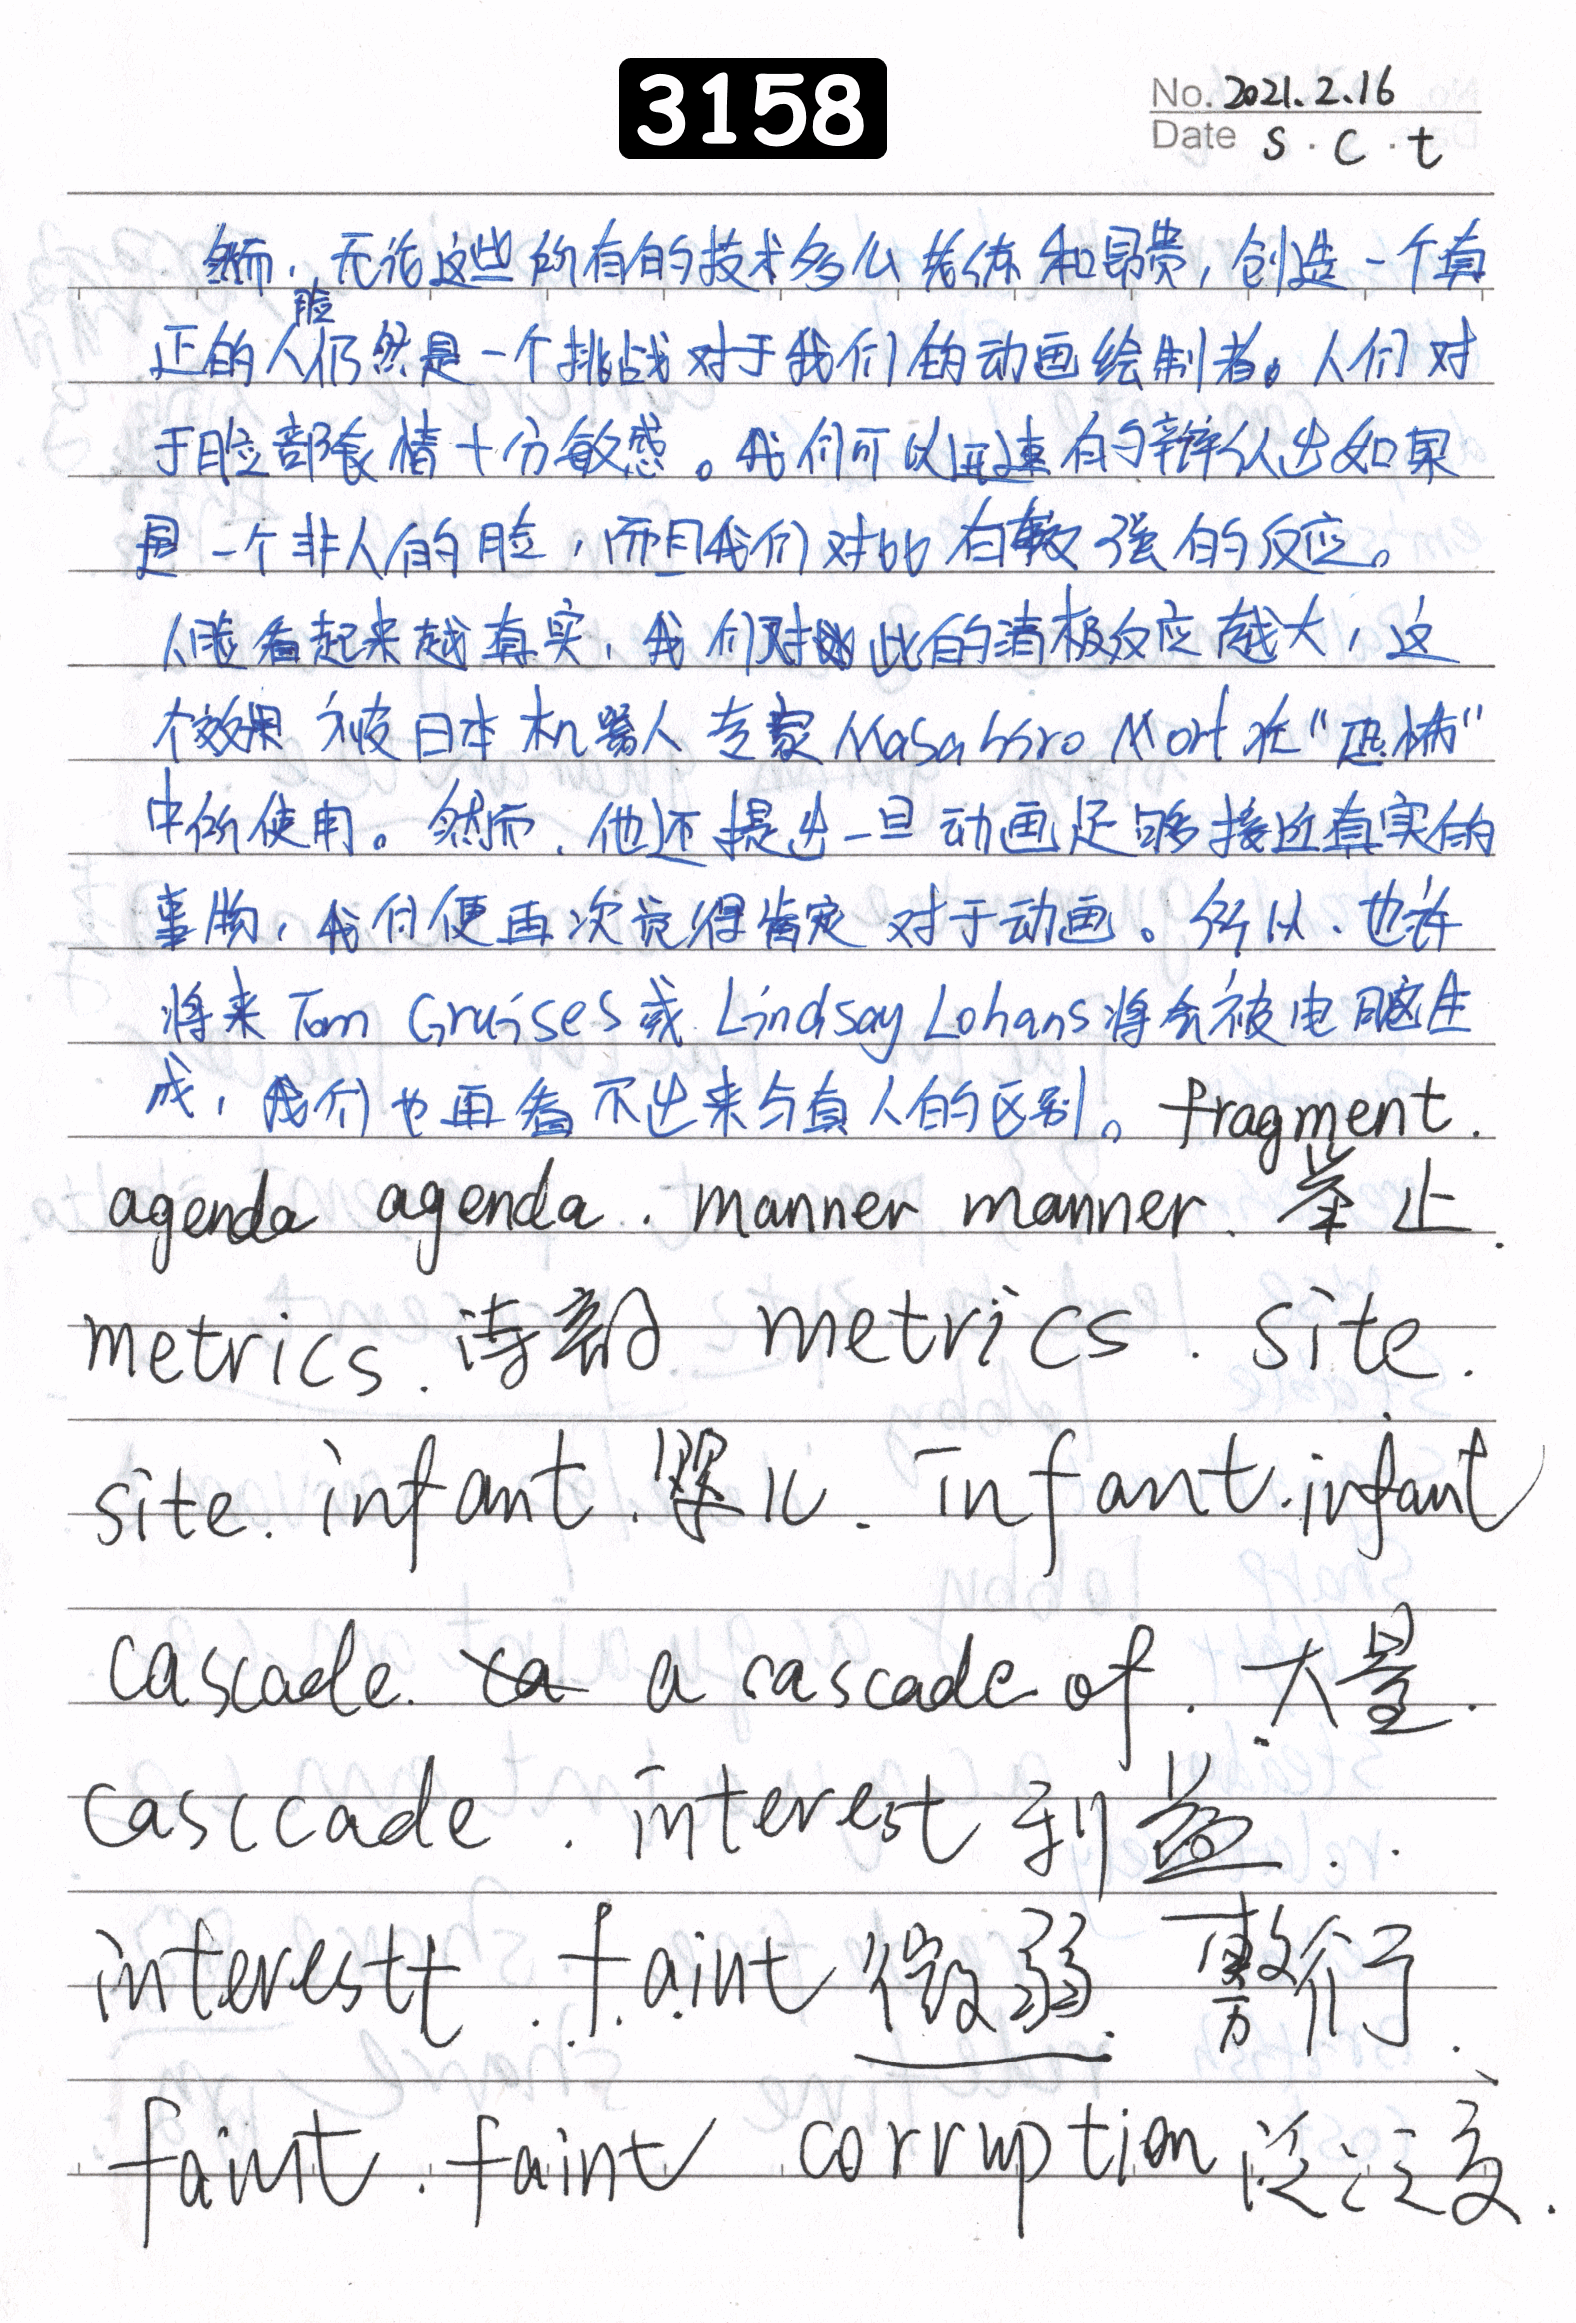 3158
No. 2021.2.16
Date S.C.t
然而,无论这些所有的技术多么先练和昂贵,创造一个真
正的人脸仍然是一个挑战对于我们的动画绘制者。人们对
于脸部表情十分敏感。我们可以迅速的辩认出如果
是一个非人的脸,而且我们对此有较强的反应。
人脸看起来越真实,我们对此的消极反应越大,这
个效果被日本机器人专家Masahiro Mori在"恐怖"
中所使用。然而,他还提出一旦动画足够接近真实的
事物,我们便再次觉得肯定对于动画。所以,也许
将来Tom Cruises或Lindsay Lohans将会被电脑生
成,我们也再看不出来与真人的区别。fragment.
agenda agenda. manner manner. 举止.
metrics. 诗韵 metrics. site.
site. infant. 婴儿. infant. infant
cascade. a cascade of. 大量.
casccade. interest 利益..
interestt. faint 微弱. 敷衍.
faint. faint corruption